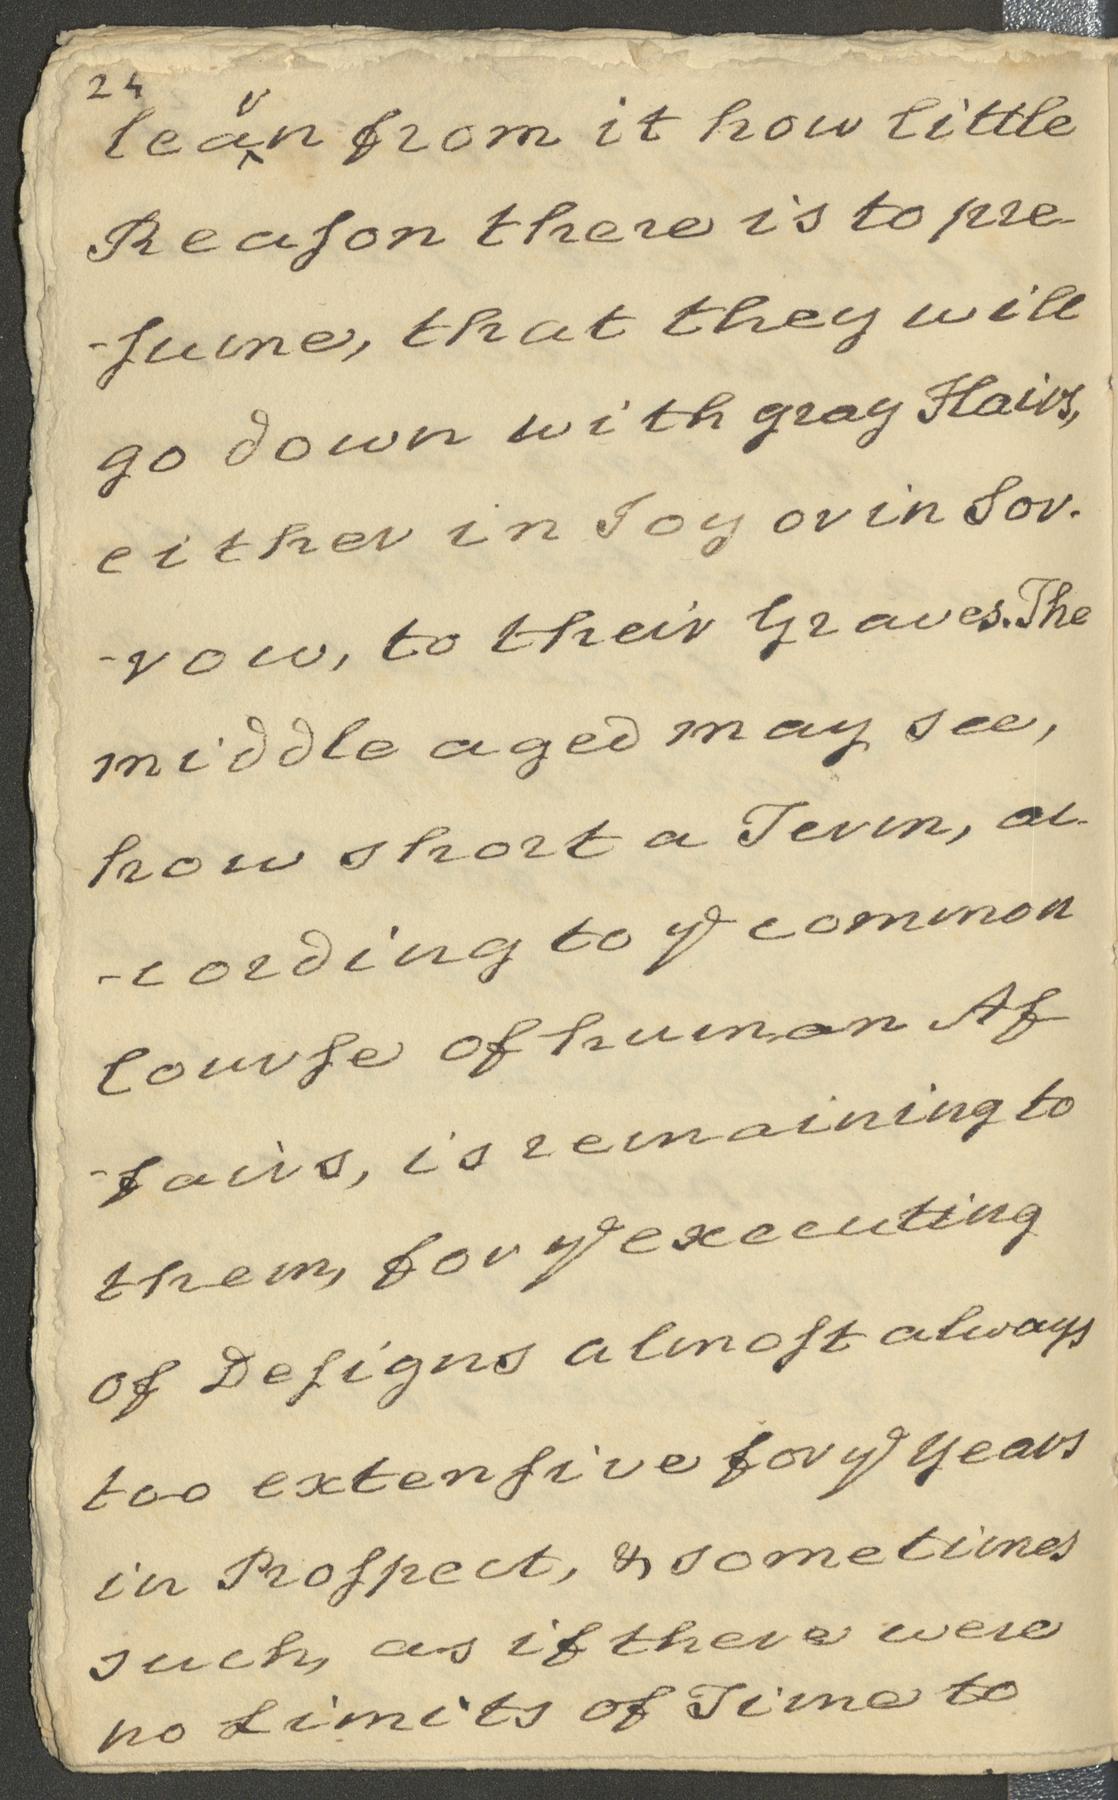 24
learn from it how little
Reaſon there is to pre
-ſume, that they will
go down with gray Hairs,
either in Joy or in Sor-
-row, to their Graves. The
middle aged may see,
how short a Term, ac
-cording to yͤ common
Courſe of human Af
-fairs, is remaining to
them, for yͤ executing
of Deſigns almoſt always
too extenſive for yͤ Years
in Proſpect, & sometimes
such, as if there were
no Limits of Time to